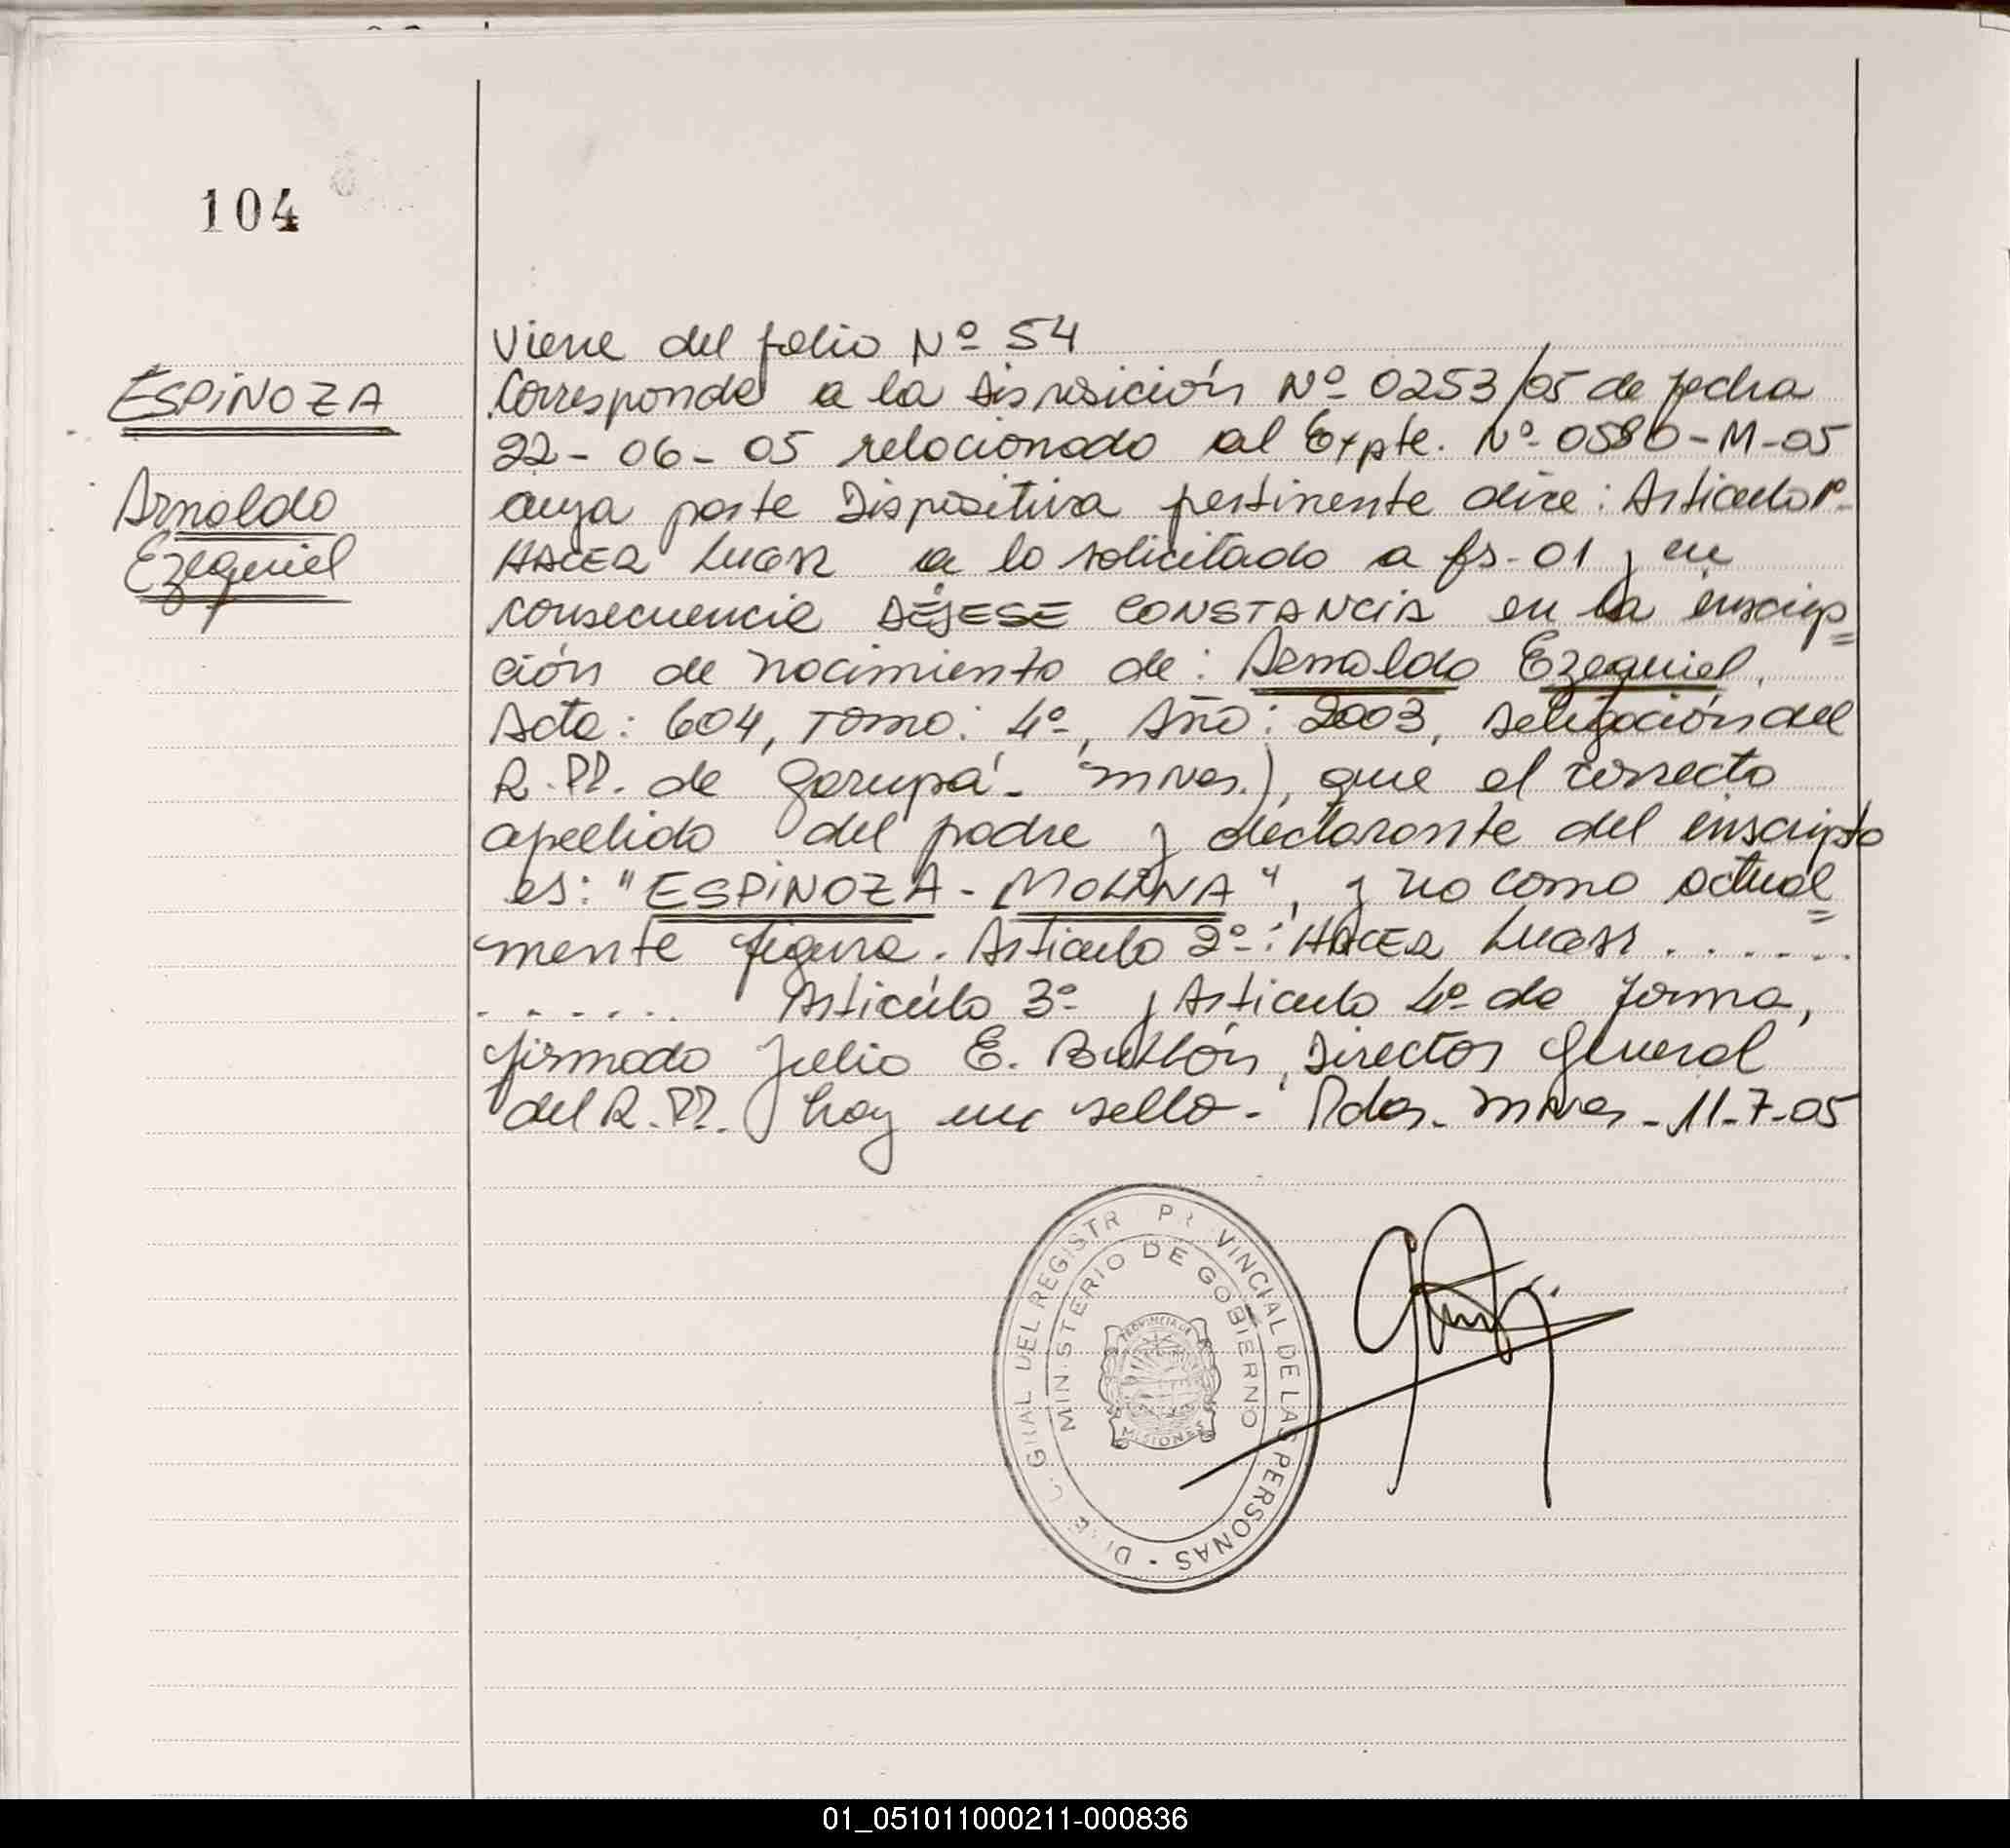 104
ESPINOZA
Arnoldo
Ezequiel
Viene del folio Nº 54
Corresponde a la Disposición Nº 0253/05 de fecha
22-06-05 relacionado al Expte. Nº 0580-M-05
cuya parte Dispositiva pertinente dice: Articulo 1º-
HACER LUGAR a lo solicitado a fs-01 y en
consecuencia DÉJESE CONSTANCIA en la inscrip=
ción de nacimiento de: Arnoldo Ezequiel,
Acta: 604, Tomo: 4º, Año: 2003, Delegación del
R.PP. de Garupá- Mnes.), que el correcto
apellido del padre y declarante del inscripto
es: "ESPINOZA - MOLINA", y no como actual=
mente figura. Articulo 2º: HACER LUGAR ......
...... Articulo 3º y Articulo 4º de forma,
firmado Julio E. Director General
del R.PP. hay un sello- Pdas. Mnes - 11-7-05
DIREC. GRAL DEL REGISTR PR VINCIAL DE LAS PERSONAS
MINISTERIO DE GOBIERNO
PROVINCIA DE
MISIONES
01_051011000211-000836